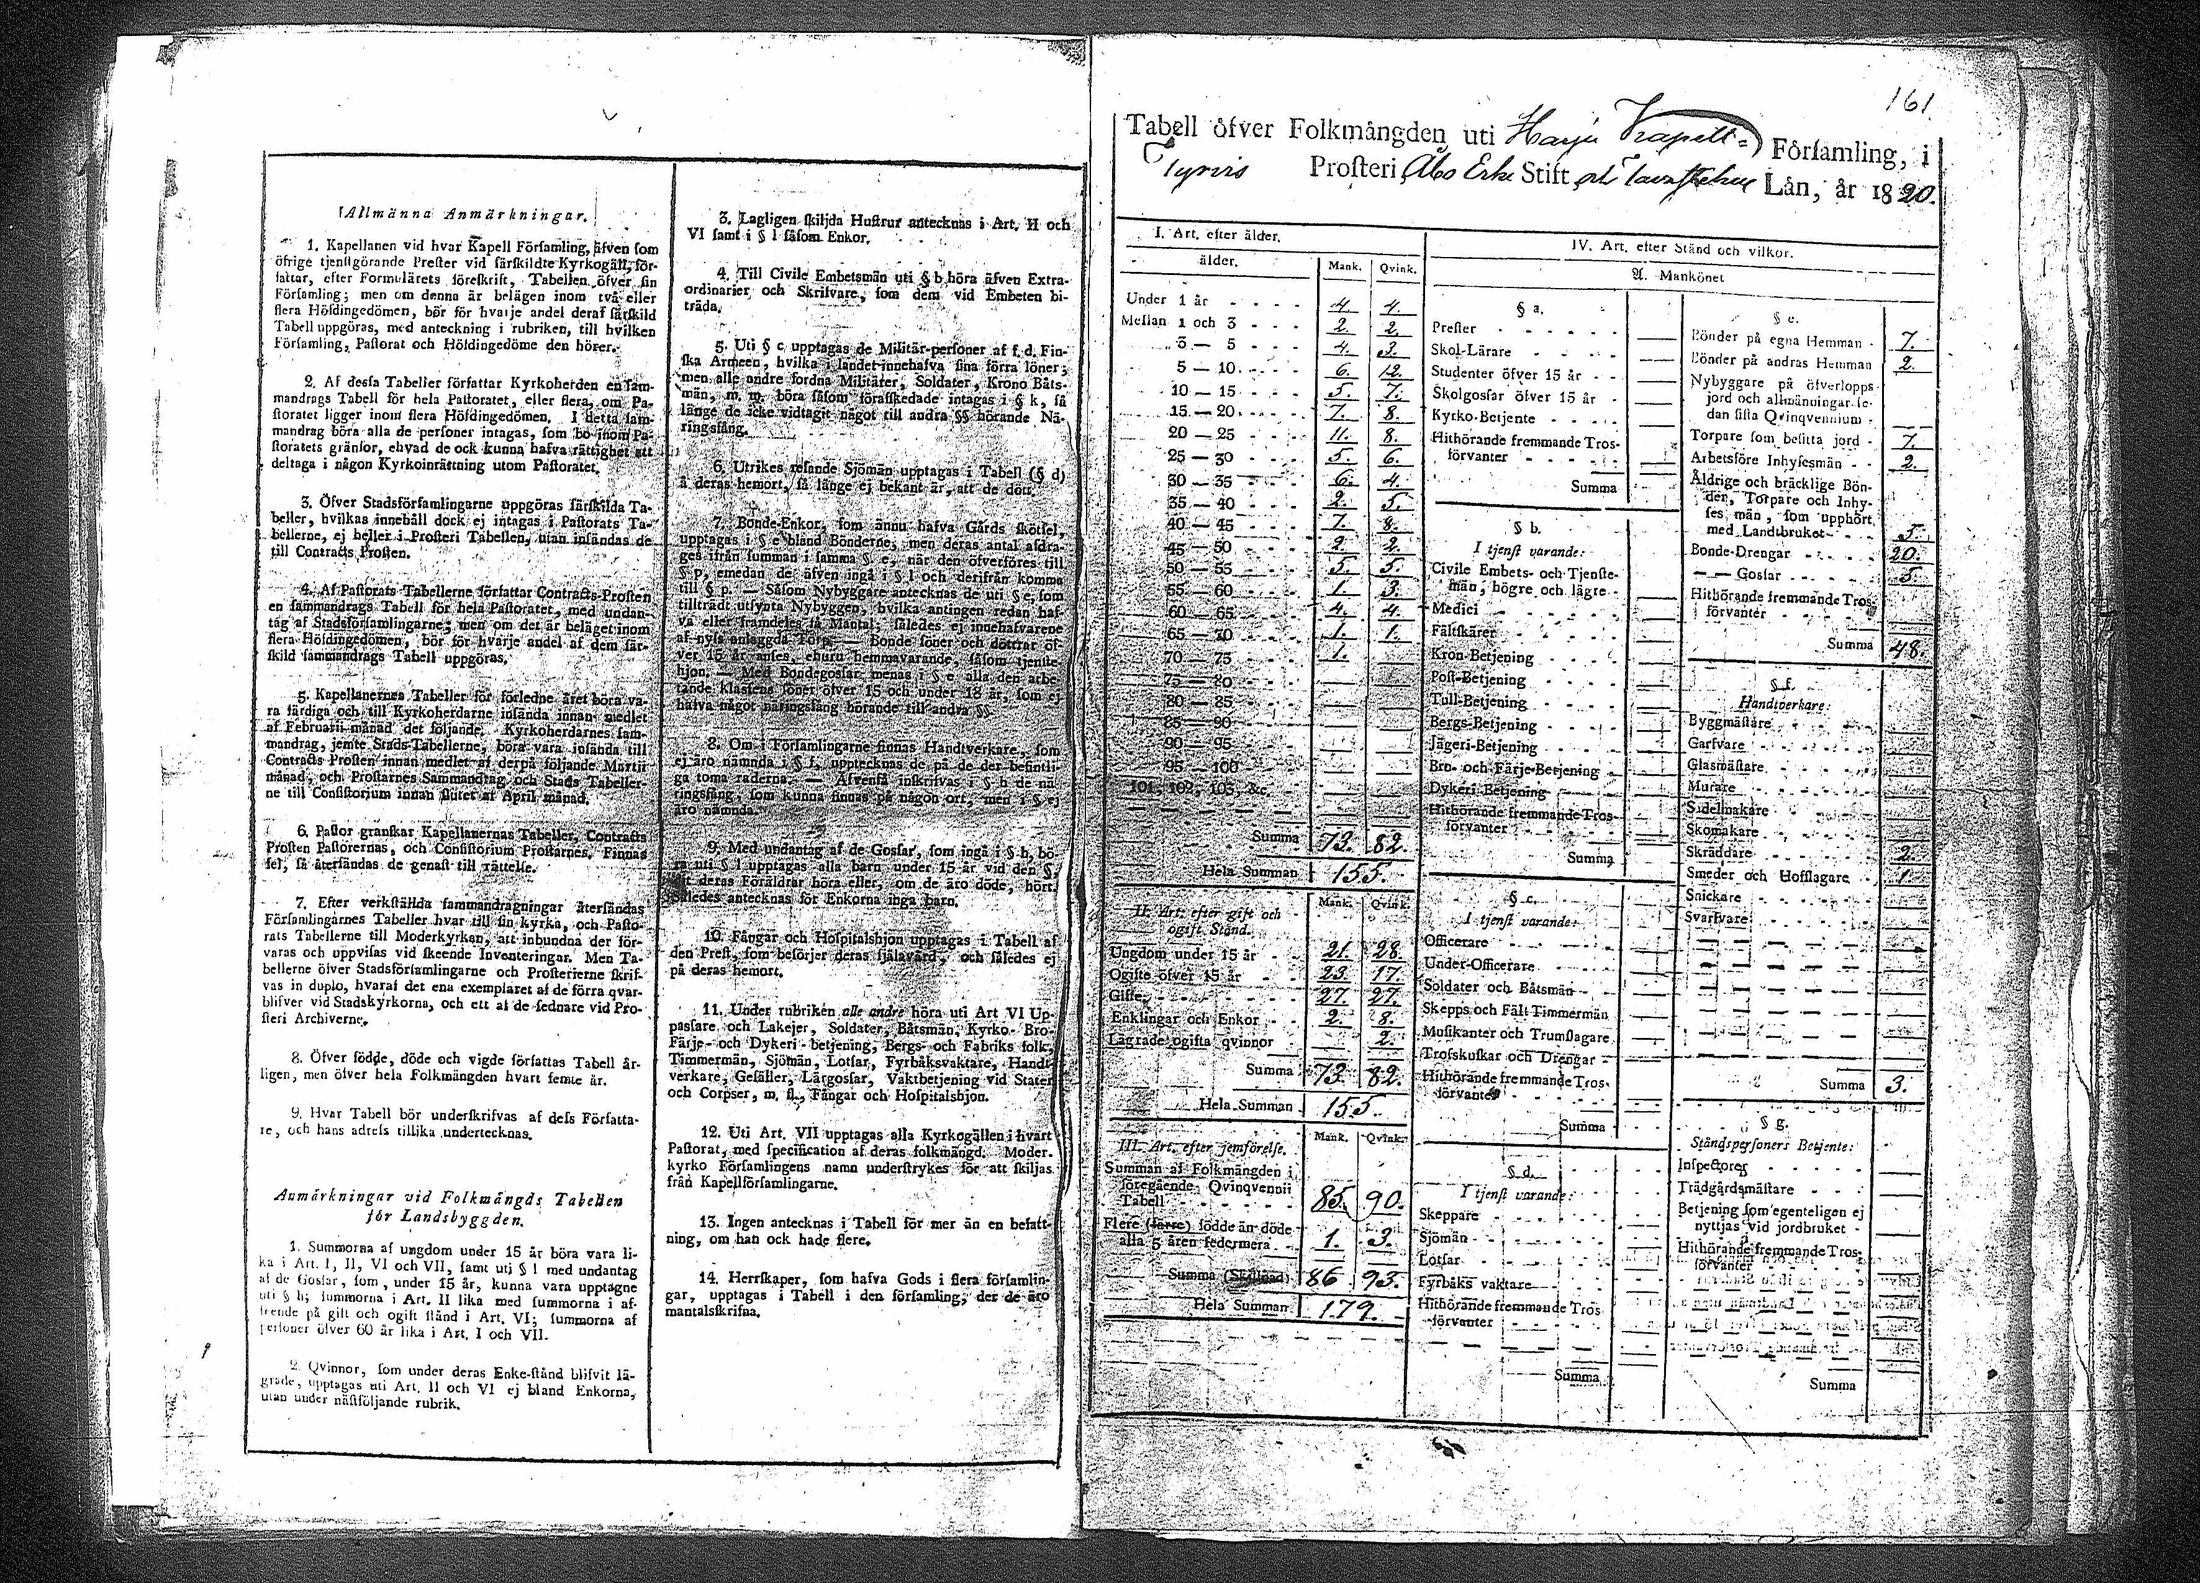 Allmänna Anmärkningar.
1. Kapellanen vid hvar Kapell Församling, äfven som
öfrige tjenstgörande Prester vid särskildte Kyrkogäll, för-
fattar, efter Formulärets föreskrift, Tabellen öfver sin
Församling; men om denna är belägen inom två eller
flera Höfdingedömen, bör för hvarje andel deraf särskild
Tabell uppgöras, med anteckning i rubriken, till hvilken
Församling, Pastorat och Höfdingedöme den hörer.
2. Af dessa Tabeller författar Kyrkoherden en sam-
mandrags Tabell för hela Pastoratet, eller flera, om Pa-
storatet ligger inom flera Höfdingedömen. I detta sam-
mandrag böra alla de personer intagas, som bo inom Pa-
storatets gränsor, ehvad de ock kunna hafva rättighet att
deltaga i någon Kyrkoinrättning utom Pastoratet.
3. Öfver Stadsförsamlingarne uppgöras särskilda Ta-
beller, hvilkas innehåll dock ej intagas i Pastorats Ta-
bellerne, ej heller i Prosteri Tabellen, utan insändas de
till Contracts Prosten.
4. Af Pastorats Tabellerne författar Contracts Prosten
en sammandrags Tabell för hela Pastoratet, med undan-
tag af Stadsförsamlingarne; men om det är beläget inom
flera Höfdingedömen, bör för hvarje andel af dem sär-
skild sammandrags Tabell uppgöras.
5. Kapellanernes Tabeller för förledne året böra va-
ra färdiga och till Kyrkoherdarne insända innan medlet
af Februarii månad det följande. Kyrkoherdarnes sam-
mandrag, jemte Stads Tabellerne, böra vara insända till
Contracts Prosten innan medlet af derpå följande Martii
månad, och Prostarnes Sammandrag och Stads Tabeller-
ne till Consistorium innan slutet af April månad.
6. Pastor granskar Kapellanernas Tabeller, Contracts
Prosten Pastorernas, och Consistorium Prostarnes. Finnas
fel, så återsändas de genast till rättelse.
7. Efter verkställda sammandragningar återsändas
Församlingarnes Tabeller hvar till sin kyrka, och Pasto-
rats Tabellerne till Moderkyrkan, att inbundna der för-
varas och uppvisas vid skeende Inventeringar. Men Ta-
bellerne öfver Stadsförsamlingarne och Prosterierne skrif-
vas in duplo, hvaraf det ena exemplaret af de förra qvar-
blifver vid Stadskyrkorna, och ett af de sednare vid Pro-
steri Archiverne.
8. Öfver födde, döde och vigde författas Tabell år-
ligen, men öfver hela Folkmängden hvart femte år.
9. Hvar Tabell bör underskrifvas af dess Författa-
re, och hans adress tillika undertecknas.
Anmärkningar vid Folkmängds Tabellen
för Landsbyggden.
1. Summorna af ungdom under 15 år böra vara li-
ka i Art. I, II, VI och VII, samt uti § l med undantag
af de Gossar, som, under 15 år, kunna vara upptagne
uti § h; summorna i Art. II lika med summorna i af-
seende på gift och ogift stånd i Art. VI; summorna af
personer öfver 60 år lika i Art. I och VII.
2. Qvinnor, som under deras Enke-stånd blifvit lä-
grade, upptagas uti Art. II och VI ej bland Enkorna,
utan under nästföljande rubrik.
3. Lagligen skiljda Hustrur antecknas i Art. II och
VI samt i § l såsom Enkor.
4. Till Civile Embetsmän uti § b höra äfven Extra-
ordinarier och Skrifvare, som dem vid Embeten bi-
träda.
5. Uti § c upptagas de Militär-personer af f. d. Fin-
ska Armeen, hvilka i landet innehafva sina förra löner;
men alle andre fordna Militärer, Soldater, Krono Båts-
män, m. m. böra såsom förafskedade intagas i § k, så
länge de icke vidtagit något till andra §§ hörande Nä-
ringsfång.
6. Utrikes resande Sjömän upptagas i Tabell (§ d)
å deras hemort, så länge ej bekant är, att de dött.
7. Bonde-Enkor, som ännu hafva Gårds skötsel,
upptagas i § e bland Bönderne, men deras antal afdra-
ges ifrån summan i samma § e, när den öfverföres till
§ p, emedan de äfven ingå i § l och derifrån komma
till § p. — Såsom Nybyggare antecknas de uti § e, som
tillträdt utsynta Nybyggen, hvilka antingen redan haf-
va eller framdeles få Mantal; således ej innehafvarene
af nyss anlaggda Torp. — Bonde söner och döttrar öf-
ver 15 år anses, ehuru hemmavarande, såsom tjenste-
hjon. — Med Bondegossar menas i § e alla den arbe-
tande klassens söner öfver 15 och under 18 år, som ej
hafva något näringsfång hörande till andra §§.
8. Om i Församlingarne finnas Handtverkare, som
ej äro nämnda i § f, upptecknas de på de der befintli-
ga toma raderna. — Äfvenså inskrifvas i § h de nä-
ringsfång, som kunna finnas på någon ort, men i § ej
äro nämnda.
9. Med undantag af de Gossar, som ingå i § h, bö-
ra uti § l upptagas alla barn under 15 år vid den §,
dit deras Föräldrar höra eller, om de äro döde, hört.
Således antecknas för Enkorna inga barn.
10. Fångar och Hospitalshjon upptagas i Tabell af
den Prest, som besörjer deras själavård, och således ej
på deras hemort.
11. Under rubriken alle andre höra uti Art VI Up-
passare och Lakejer, Soldater, Båtsmän, Kyrko- Bro-
Färje- och Dykeri-betjening, Bergs- och Fabriks folk,
Timmermän, Sjömän, Lotsar, Fyrbåksvaktare, Handt-
verkare, Gesäller, Lärgossar, Vaktbetjening vid Stater
och Corpser, m. fl., Fångar och Hospitalshjon.
12. Uti Art. VII upptagas alla Kyrkogällen i hvart
Pastorat, med specification af deras folkmängd. Moder-
kyrko Församlingens namn understrykes för att skiljas
från Kapellförsamlingarne.
13. Ingen antecknas i Tabell för mer än en befatt-
ning, om han ock hade flere.
14. Herrskaper, som hafva Gods i flera församlin-
gar, upptagas i Tabell i den församling, der de äro
mantalsskrifna.
161
Tabell öfver Folkmängden uti Harju Kapell= Församling, i
Tyrvis Prosteri Åbo Erke Stift och Tavastehus Län, år 1820.
I. Art. efter ålder.
ålder. Mank. Qvink.
Under 1 år 4. 4.
Mellan 1 och 3 2. 2.
3 — 5 4. 3.
5 — 10 6. 12.
10 — 15 5. 7.
15 — 20 7. 8.
20 — 25 11. 8.
25 — 30 5. 6.
30 — 35 6. 4.
35 — 40 2. 5.
40 — 45 7. 8.
45 — 50 2. 2.
50 — 55 5. 5.
55 — 60 1. 3.
60 — 65 4. 4.
65 — 70 1. 1.
70 — 75 1.
75 — 80
80 — 85
85 — 90
90 — 95
95 — 100
101, 102, 103, &c.
Summa 73. 82.
Hela Summan 155.
II. Art. efter gift och Mank. Qvink.
ogift Stånd.
Ungdom under 15 år 21. 28.
Ogifte öfver 15 år 23. 17.
Gifte 27. 27.
Enklingar och Enkor 2. 8.
Lägrade ogifta qvinnor 2.
Summa 73. 82.
Hela Summan 155.
III. Art. efter jemförelse. Mank. Qvink.
Summan af Folkmängden i
föregående Qvinqvennii
Tabell 85. 90.
Flere (färre) födde än döde
alla 5 åren sedermera 1. 3.
Summa (Skillnad) 86 93.
Hela Summan 179.
IV. Art. efter Stånd och vilkor.
A. Mankönet
§ a.
Prester
Skol-Lärare
Studenter öfver 15 år
Skolgossar öfver 15 år
Kyrko-Betjente
Hithörande fremmande Tros-
förvanter
Summa
§ b.
I tjenst varande:
Civile Embets- och Tjenste-
män, högre och lägre
Medici
Fältskärer
Kron-Betjening
Post-Betjening
Tull-Betjening
Bergs-Betjening
Jägeri-Betjening
Bro- och Färje-Betjening
Dykeri-Betjening
Hithörande fremmande Tros-
förvanter
Summa
§ c.
I tjenst varande:
Officerare
Under-Officerare
Soldater och Båtsmän
Skepps och Fält Timmermän
Musikanter och Trumslagare
Trosskuskar och Drengar
Hithörande fremmande Tros-
förvanter
Summa
§ d.
I tjenst varande:
Skeppare
Sjömän
Lotsar
Fyrbåks vaktare
Hithörande fremmande Tros-
förvanter
Summa
§ e.
Bönder på egna Hemman 7.
Bönder på andras Hemman 2.
Nybyggare på öfverlopps-
jord och allmänningar se-
dan sista Qvinqvennium
Torpare som besitta jord 7.
Arbetsföre Inhysesmän 2.
Åldrige och bräcklige Bön-
der, Torpare och Inhy-
ses män, som upphört
med Landtbruket 5.
Bonde-Drengar 20.
— — Gossar 5.
Hithörande fremmande Tros-
förvanter
Summa 48.
§ f.
Handtverkare:
Byggmästare
Garfvare
Glasmästare
Murare
Sadelmakare
Skomakare
Skräddare 2.
Smeder och Hofslagare 1.
Snickare
Svarfvare
Summa 3.
§ g.
Ståndspersoners Betjente:
Inspectorer
Trädgårdsmästare
Betjening som egenteligen ej
nyttjas vid jordbruket
Hithörande fremmande Tros-
förvanter
Summa